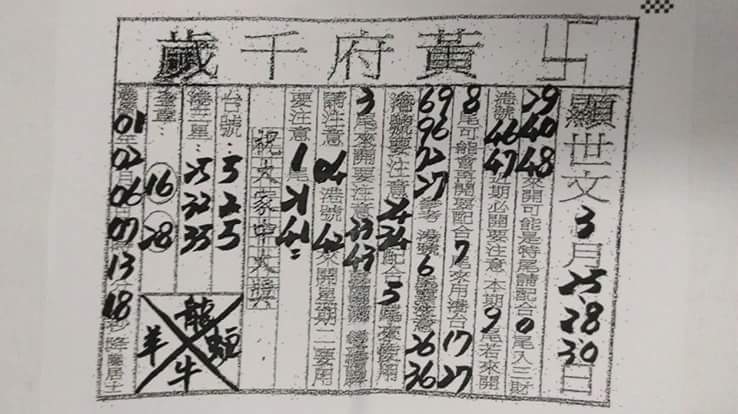 卐黃府千歲
顯世文3月25、28、30日
29 40 48來開可能是特尾請配合0尾入三財
港號46 47近期必開要注意 本期9尾若來開
8尾可能會再開要配合7尾來用港台17 27
69 96 72 27參考 港號6尾要注意26 36
港號要注意24 34配合5尾來使用
3尾來開要注意23 43
請注意04港號42來開星期二要用
要注意1尾21 41
祝大家中大獎
台號：5 2 5
港三星：25 32 35
16 28
01年02 06 07 13 18秒降鸞居士
龍
羊
牛